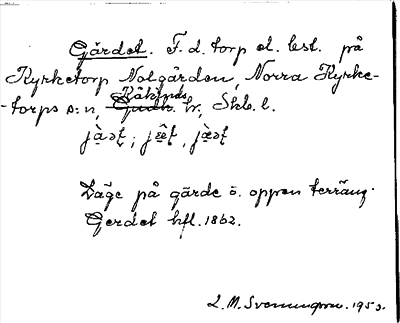 Gärdet. F. d. torp el. lest. på
Kyrketorp Nolgården, Norra Kyrke-
-torps s:n, Kåkinds hr, Skb. l.
Läge på gärde ö. oppen terräng.
Gerdet hfl. 1862.
L. M. Svenungsson. 1953.